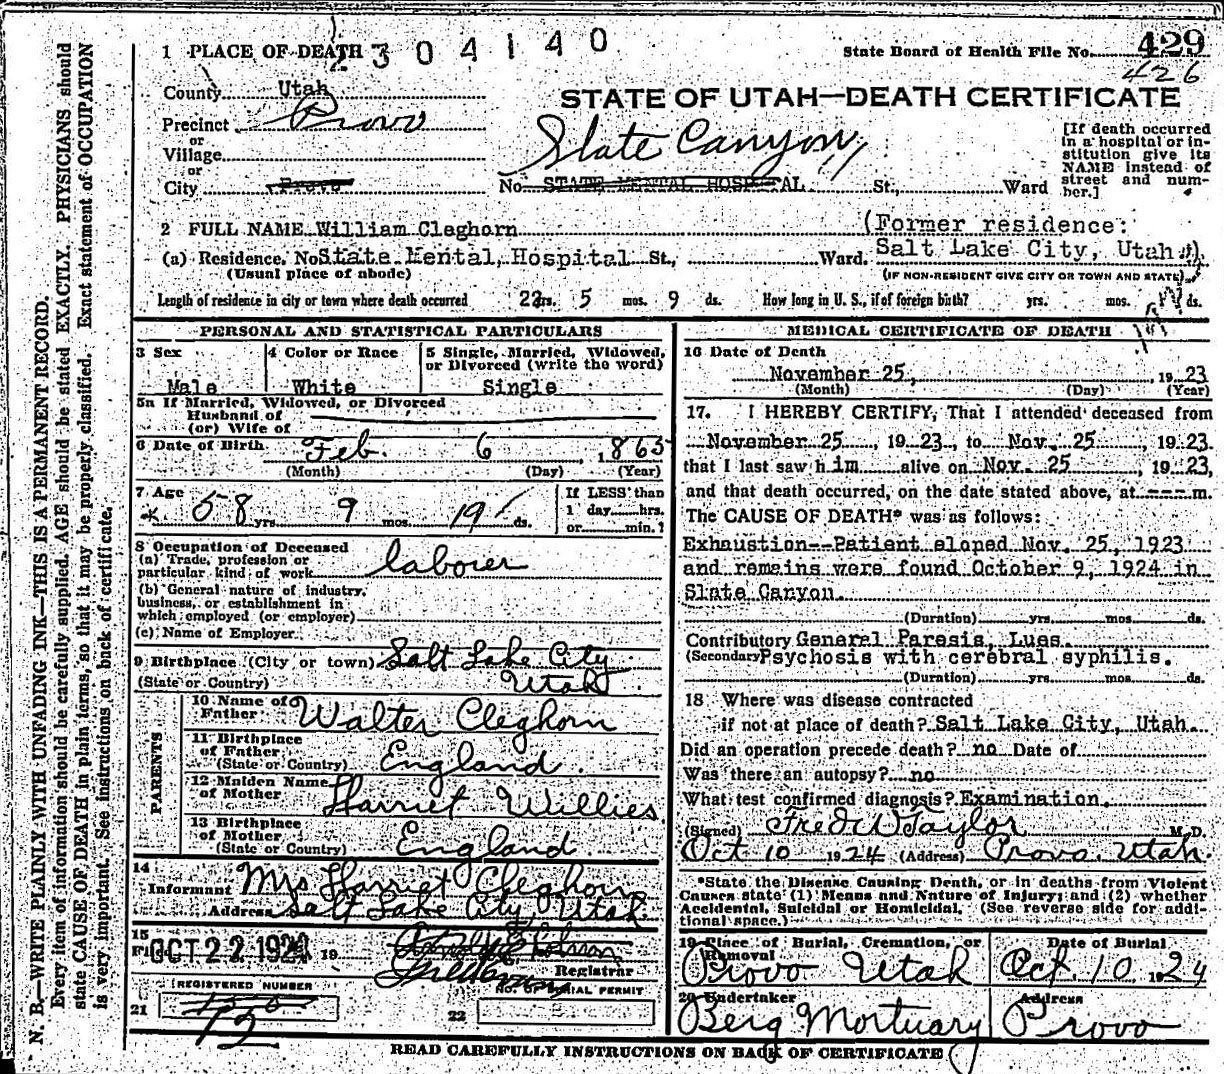 2304140
1 PLACE OF DEATH
State Board of Health File No. 429
426
County Utah
STATE OF UTAH—DEATH CERTIFICATE
Precinct Provo
or
Village
or
City Provo
Slate Canyon
No. STATE MENTAL HOSPITAL St., Ward
[If death occurred in a hospital or institution give its NAME instead of street and number.]
2 FULL NAME William Cleghorn
(Former residence:
Salt Lake City, Utah).
(a) Residence. No State Mental Hospital St., Ward.
(Usual place of abode)
(IF NON-RESIDENT GIVE CITY OR TOWN AND STATE)
Length of residence in city or town where death occurred 22 yrs. 5 mos. 9 ds. How long in U. S., if of foreign birth? yrs. mos. ds.
PERSONAL AND STATISTICAL PARTICULARS
3 Sex
Male
4 Color or Race
White
5 Single, Married, Widowed, or Divorced (write the word)
Single
5a If Married, Widowed, or Divorced
Husband of
(or) Wife of
6 Date of Birth Feb. 6, 1863
(Month) (Day) (Year)
7 Age
58 yrs. 9 mos. 19 ds.
If LESS than
1 day hrs.
or min.?
8 Occupation of Deceased
(a) Trade, profession or
particular kind of work laborer
(b) General nature of industry,
business, or establishment in
which employed (or employer)
(c) Name of Employer
9 Birthplace (City or town) Salt Lake City
(State or Country) Utah
PARENTS
10 Name of Father Walter Cleghorn
11 Birthplace of Father
(State or Country) England
12 Maiden Name of Mother Harriet Willies
13 Birthplace of Mother
(State or Country) England
14
Informant Mrs Harriet Cleghorn
Address Salt Lake City, Utah
15
Filed OCT 22 1924 19
Registrar
REGISTERED NUMBER
21 72
22 NO. OF BURIAL PERMIT
MEDICAL CERTIFICATE OF DEATH
16 Date of Death
November 25, 1923
(Month) (Day) (Year)
17. I HEREBY CERTIFY, That I attended deceased from
November 25, 1923, to Nov. 25, 1923.
that I last saw him alive on Nov. 25, 1923,
and that death occurred, on the date stated above, at ---m.
The CAUSE OF DEATH* was as follows:
Exhaustion--Patient eloped Nov. 25, 1923
and remains were found October 9, 1924 in
Slate Canyon.
(Duration) yrs. mos. ds.
Contributory General Paresis, Lues.
(Secondary) Psychosis with cerebral syphilis.
(Duration) yrs. mos. ds.
18 Where was disease contracted
if not at place of death? Salt Lake City, Utah.
Did an operation precede death? no Date of
Was there an autopsy? no
What test confirmed diagnosis? Examination.
(Signed) Fred W Taylor M.D.
Oct 10 1924 (Address) Provo, Utah.
*State the Disease Causing Death, or in deaths from Violent
Causes state (1) Means and Nature of Injury; and (2) whether
Accidental, Suicidal or Homicidal. (See reverse side for additional space.)
19 Place of Burial, Cremation, or Removal
Provo Utah
Date of Burial
Oct 10 1924
20 Undertaker
Berg Mortuary
Address
Provo
READ CAREFULLY INSTRUCTIONS ON BACK OF CERTIFICATE
N. B.—WRITE PLAINLY WITH UNFADING INK—THIS IS A PERMANENT RECORD.
Every item of information should be carefully supplied. AGE should be stated EXACTLY. PHYSICIANS should
state CAUSE OF DEATH in plain terms, so that it may be properly classified. Exact statement of OCCUPATION
is very important. See instructions on back of certificate.